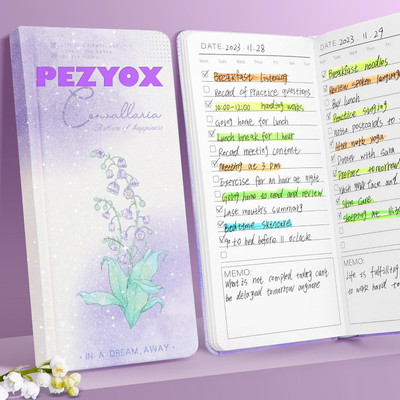 PEZYOX
Convallaria
(Return of happiness)
· IN A DREAM, AWAY ·
DATE. 2023. 11. 28
Breakfast listening
Record of practice questions
10:00-12:00 handing works
Going home for lunch
Lunch break for 1 hour
Record meeting content
Meeting at 3 pm
Exercise for an hour at night
Going home to read and review
Last month's summary
Bedtime skincare
go to bed before 11 o'clock
MEMO:
What is not compled today can't
be delayed tomorrow anymore
DATE. 2023. 11. 29
Breakfast noodles
Review spoken
Buy lunch
Practice singing
postcards to
Hair mask yoga
Dinner with Sara
Prepare tomorrow
Wash face and
Skin care
Sleeping at
MEMO:
Life is fulfilling
to work hard